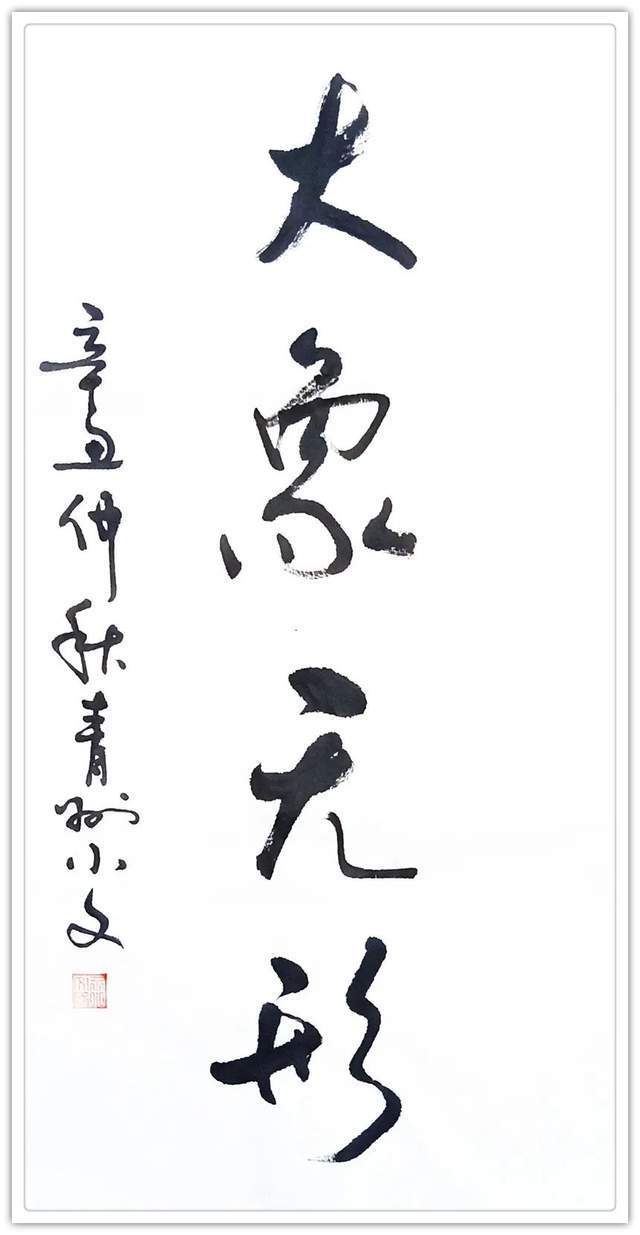 大象无形
辛丑仲秋青州小文